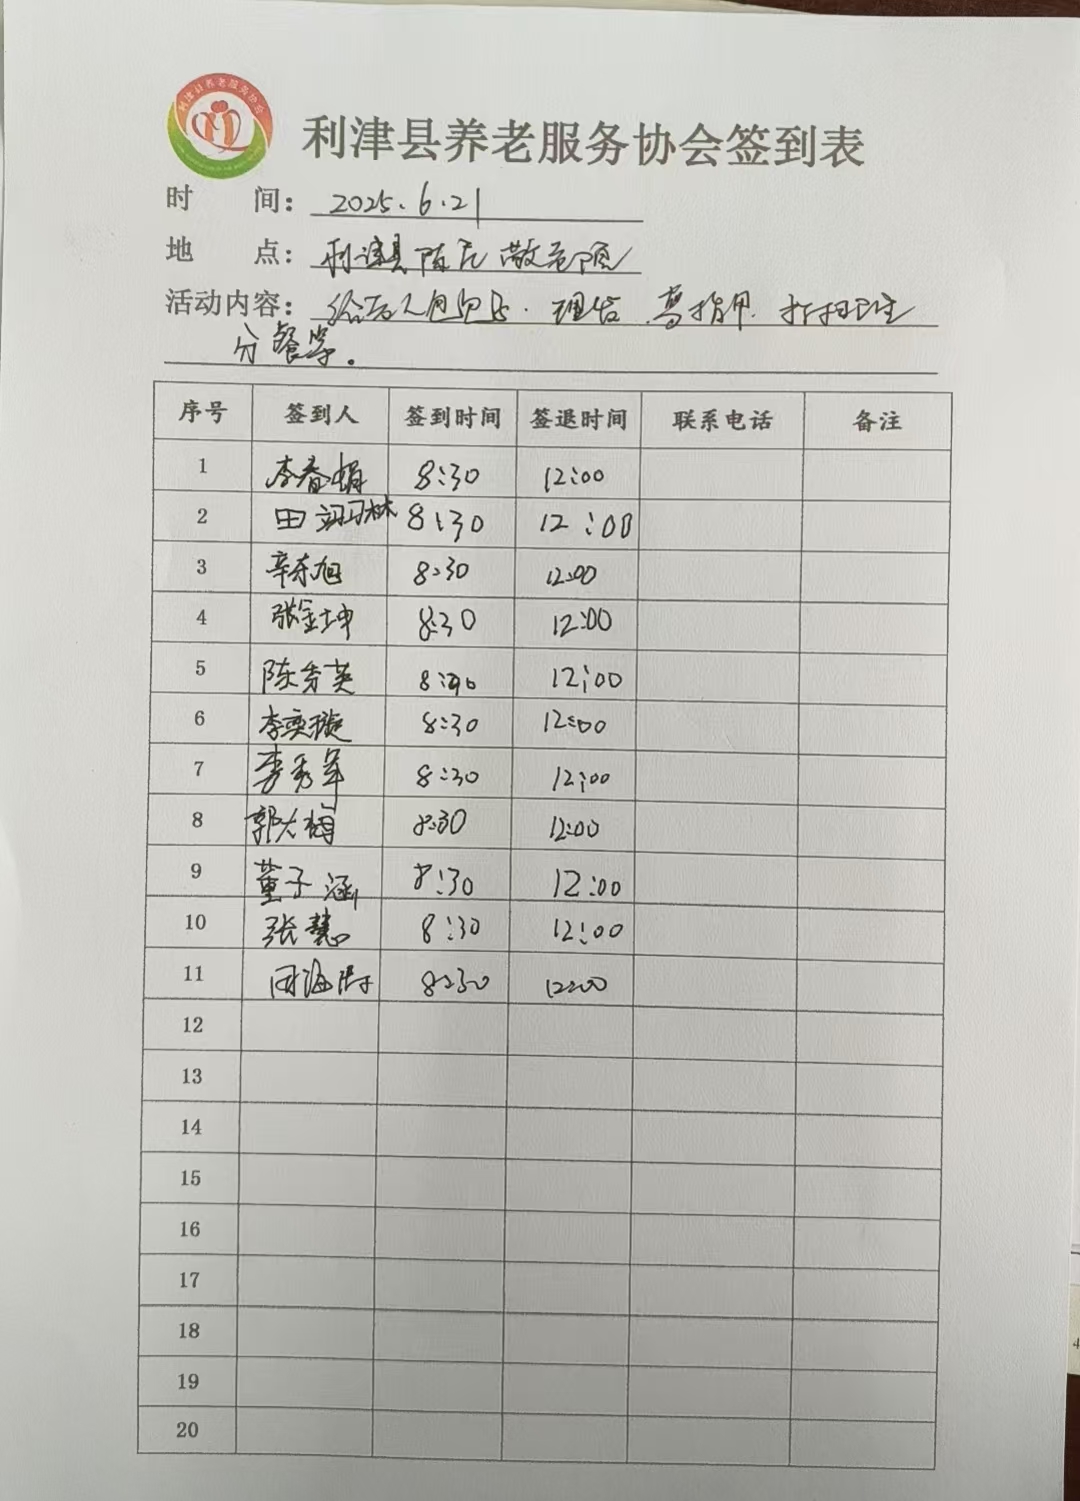 利津县养老服务协会
利津县养老服务协会签到表
时 间: 2025.6.21
地 点: 利津县陈庄敬老院
活动内容: 给老人包包子. 理发 剪指甲. 打扫卫生
分餐等.
序号 签到人 签到时间 签退时间 联系电话 备注
1 李春娟 8:30 12:00
2 田 林 8:30 12:00
3 辛东旭 8:30 12:00
4 张金坤 8:30 12:00
5 陈秀英 8:30 12:00
6 李奕璇 8:30 12:00
7 李秀军 8:30 12:00
8 郭大梅 8:30 12:00
9 董子涵 8:30 12:00
10 张慧 8:30 12:00
11 周海 8:30 12:00
12
13
14
15
16
17
18
19
20